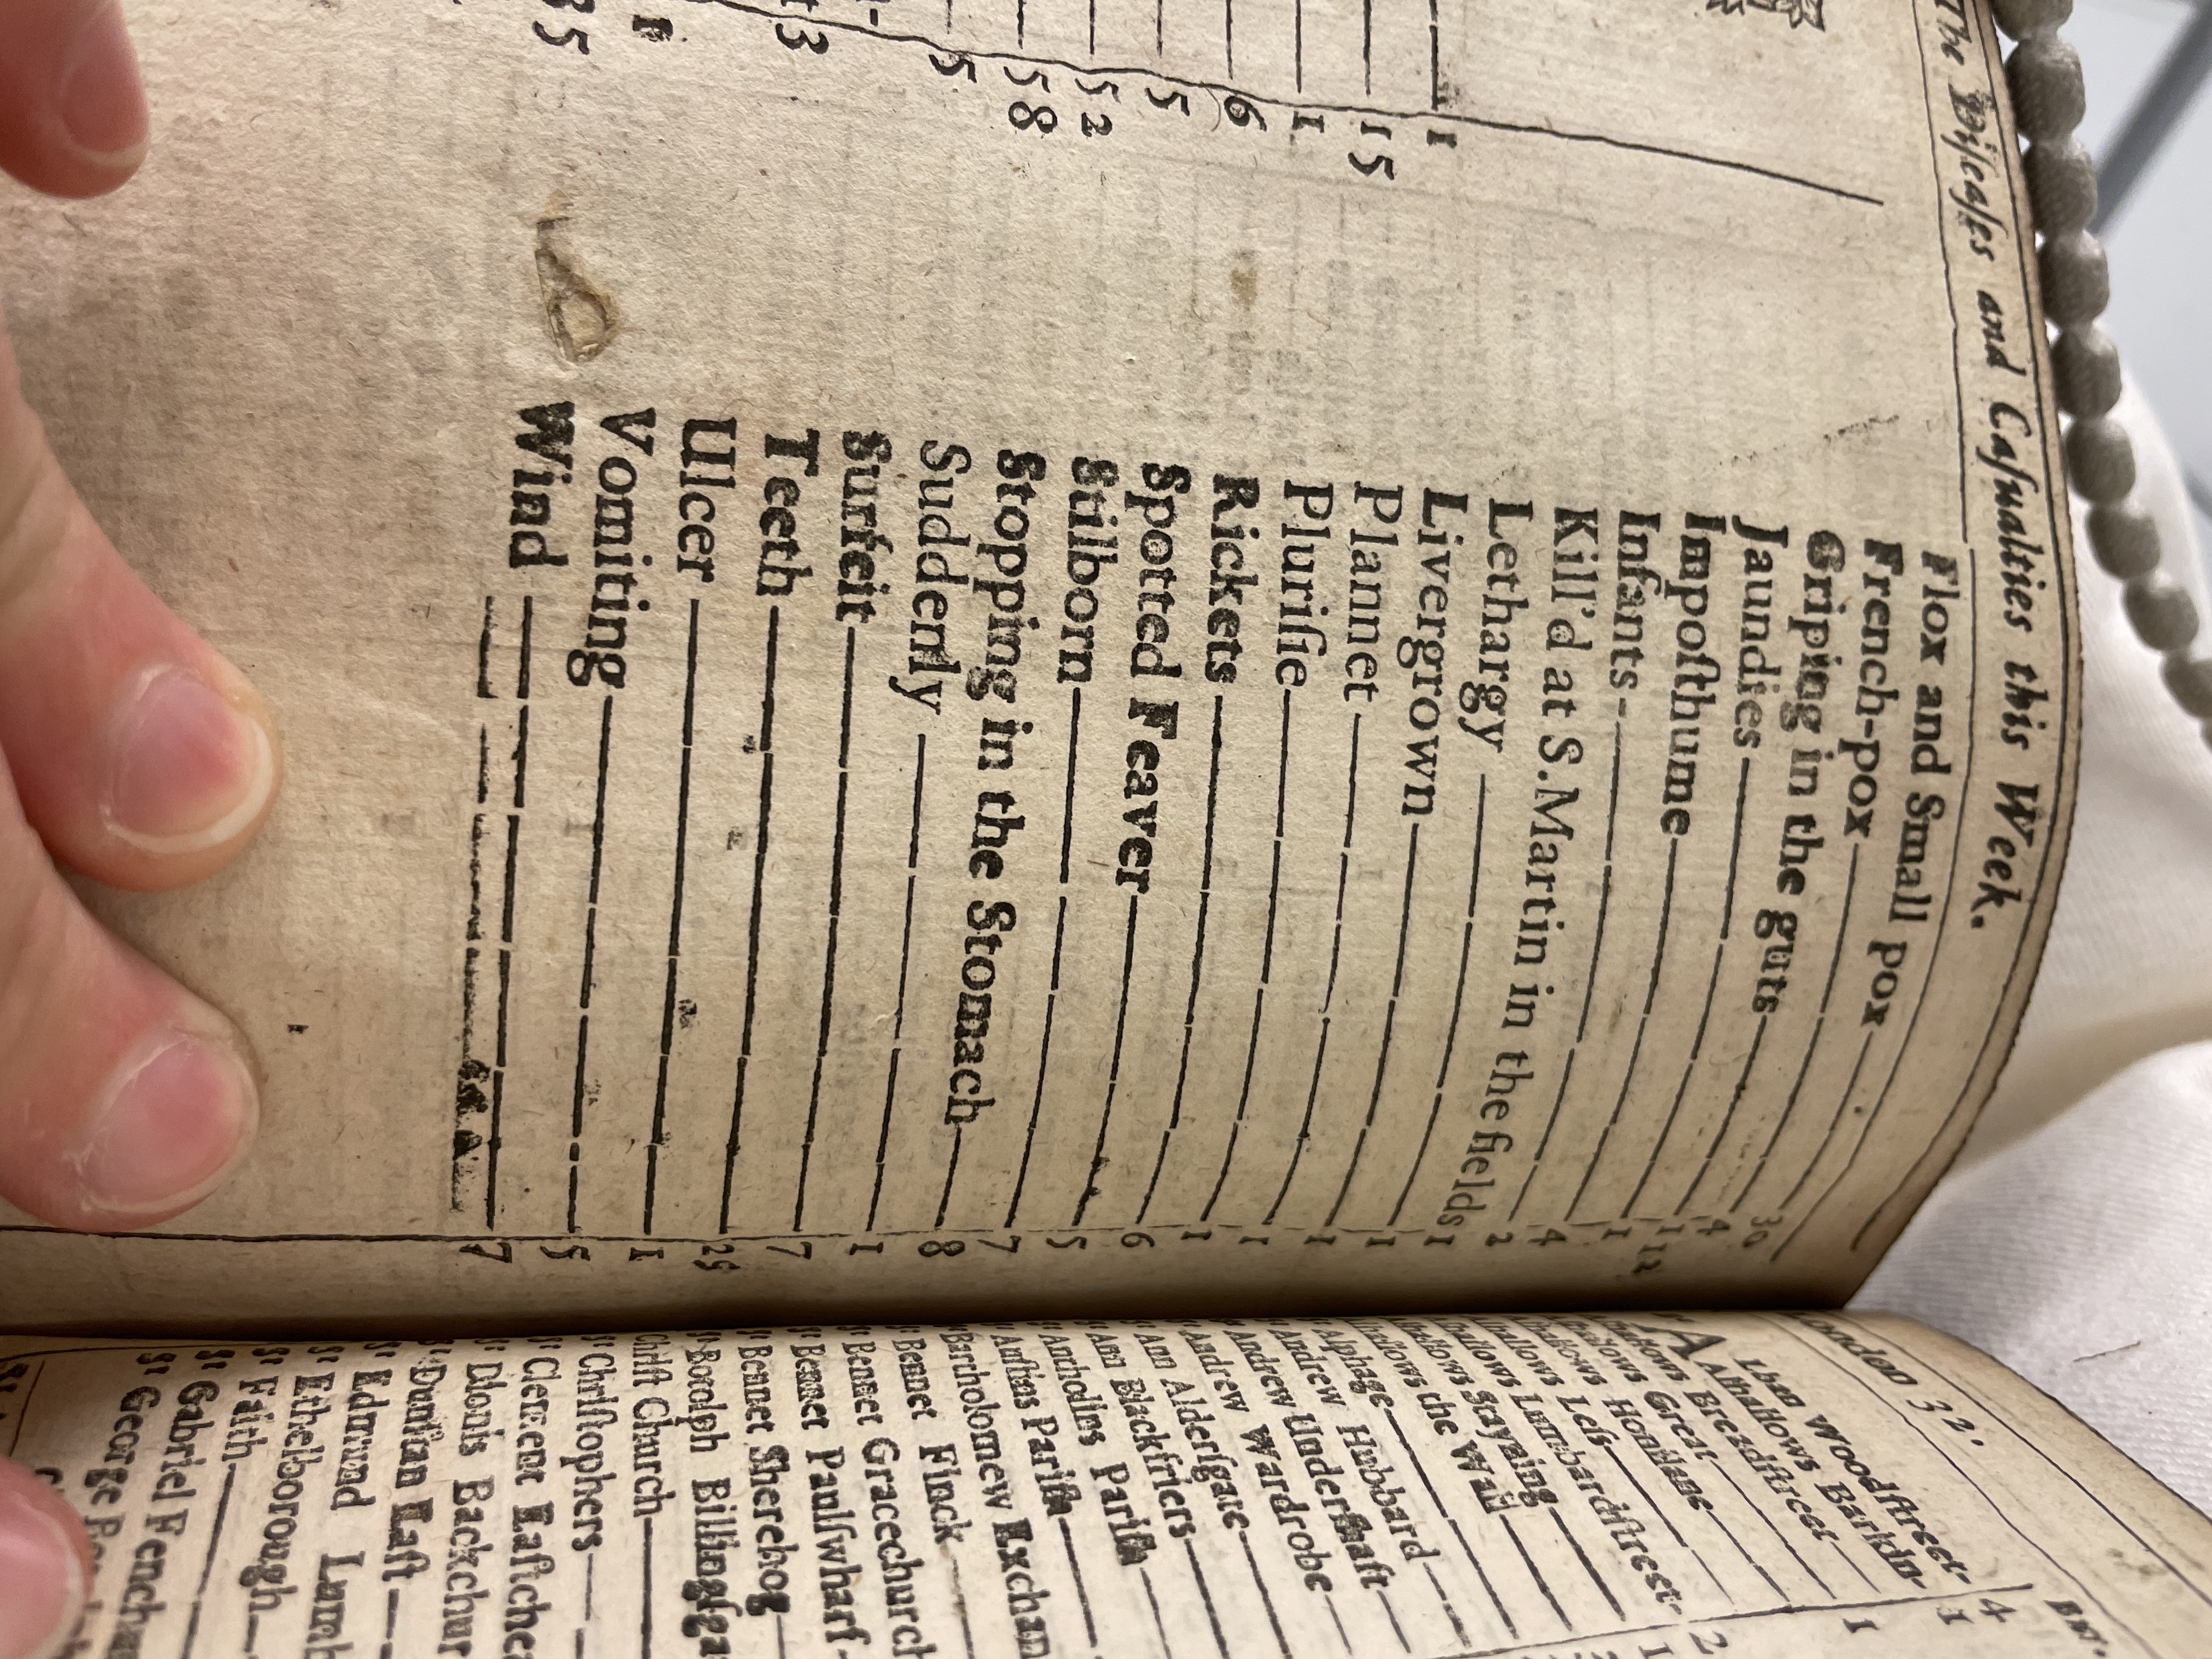 The Diſeaſes and Caſualties this Week.
1
15
1
6
5
52
58
5
3
1
35
Flox and Small pox 30
French-pox 4
Griping in the guts
Jaundies 1
Impoſthume 4
Infants 2
Kill'd at S. Martin in the fields 1
Lethargy 1
Livergrown 1
Plannet 1
Pluriſie 1
Rickets 6
Spotted Feaver 5
Stilborn 7
Stopping in the Stomach 8
Suddenly 1
Surfeit 7
Teeth
Ulcer 1
Vomiting 5
Wind 7
Woodſtreet 4
Alhallows Barkin- 1
Breadſtreet 1
Great
Honilane
Leſs
Lumbardſtreet
Stayning
the Wall
Alphage
Andrew Hubbard
Andrew Underſhaft
Andrew Wardrobe
Ann Alderſgate
Ann Blackfriers
Antholins Pariſh
Auſtins Pariſh
Bartholomew Exchan
Bennet Finck
Bennet Gracechurch
Bennet Paulſwharf
Bennet Sherehog
Botolph Billingſga
Chriſt Church
St Chriſtophers
St Clement Eaſtche
St Dionis Backchur
St Dunſtan Eaſt
St Edmund Lumb
St Ethelborough
St Faith
St Gabriel Fenchu
St George